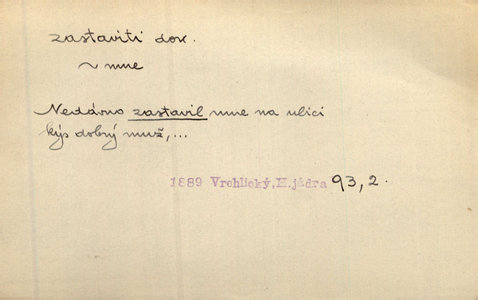 zastaviti dok.
~ mne
Nedávno zastavil mne na ulici
kýs dobrý muž,...
1889 Vrchlický, H.jádra 93,2.